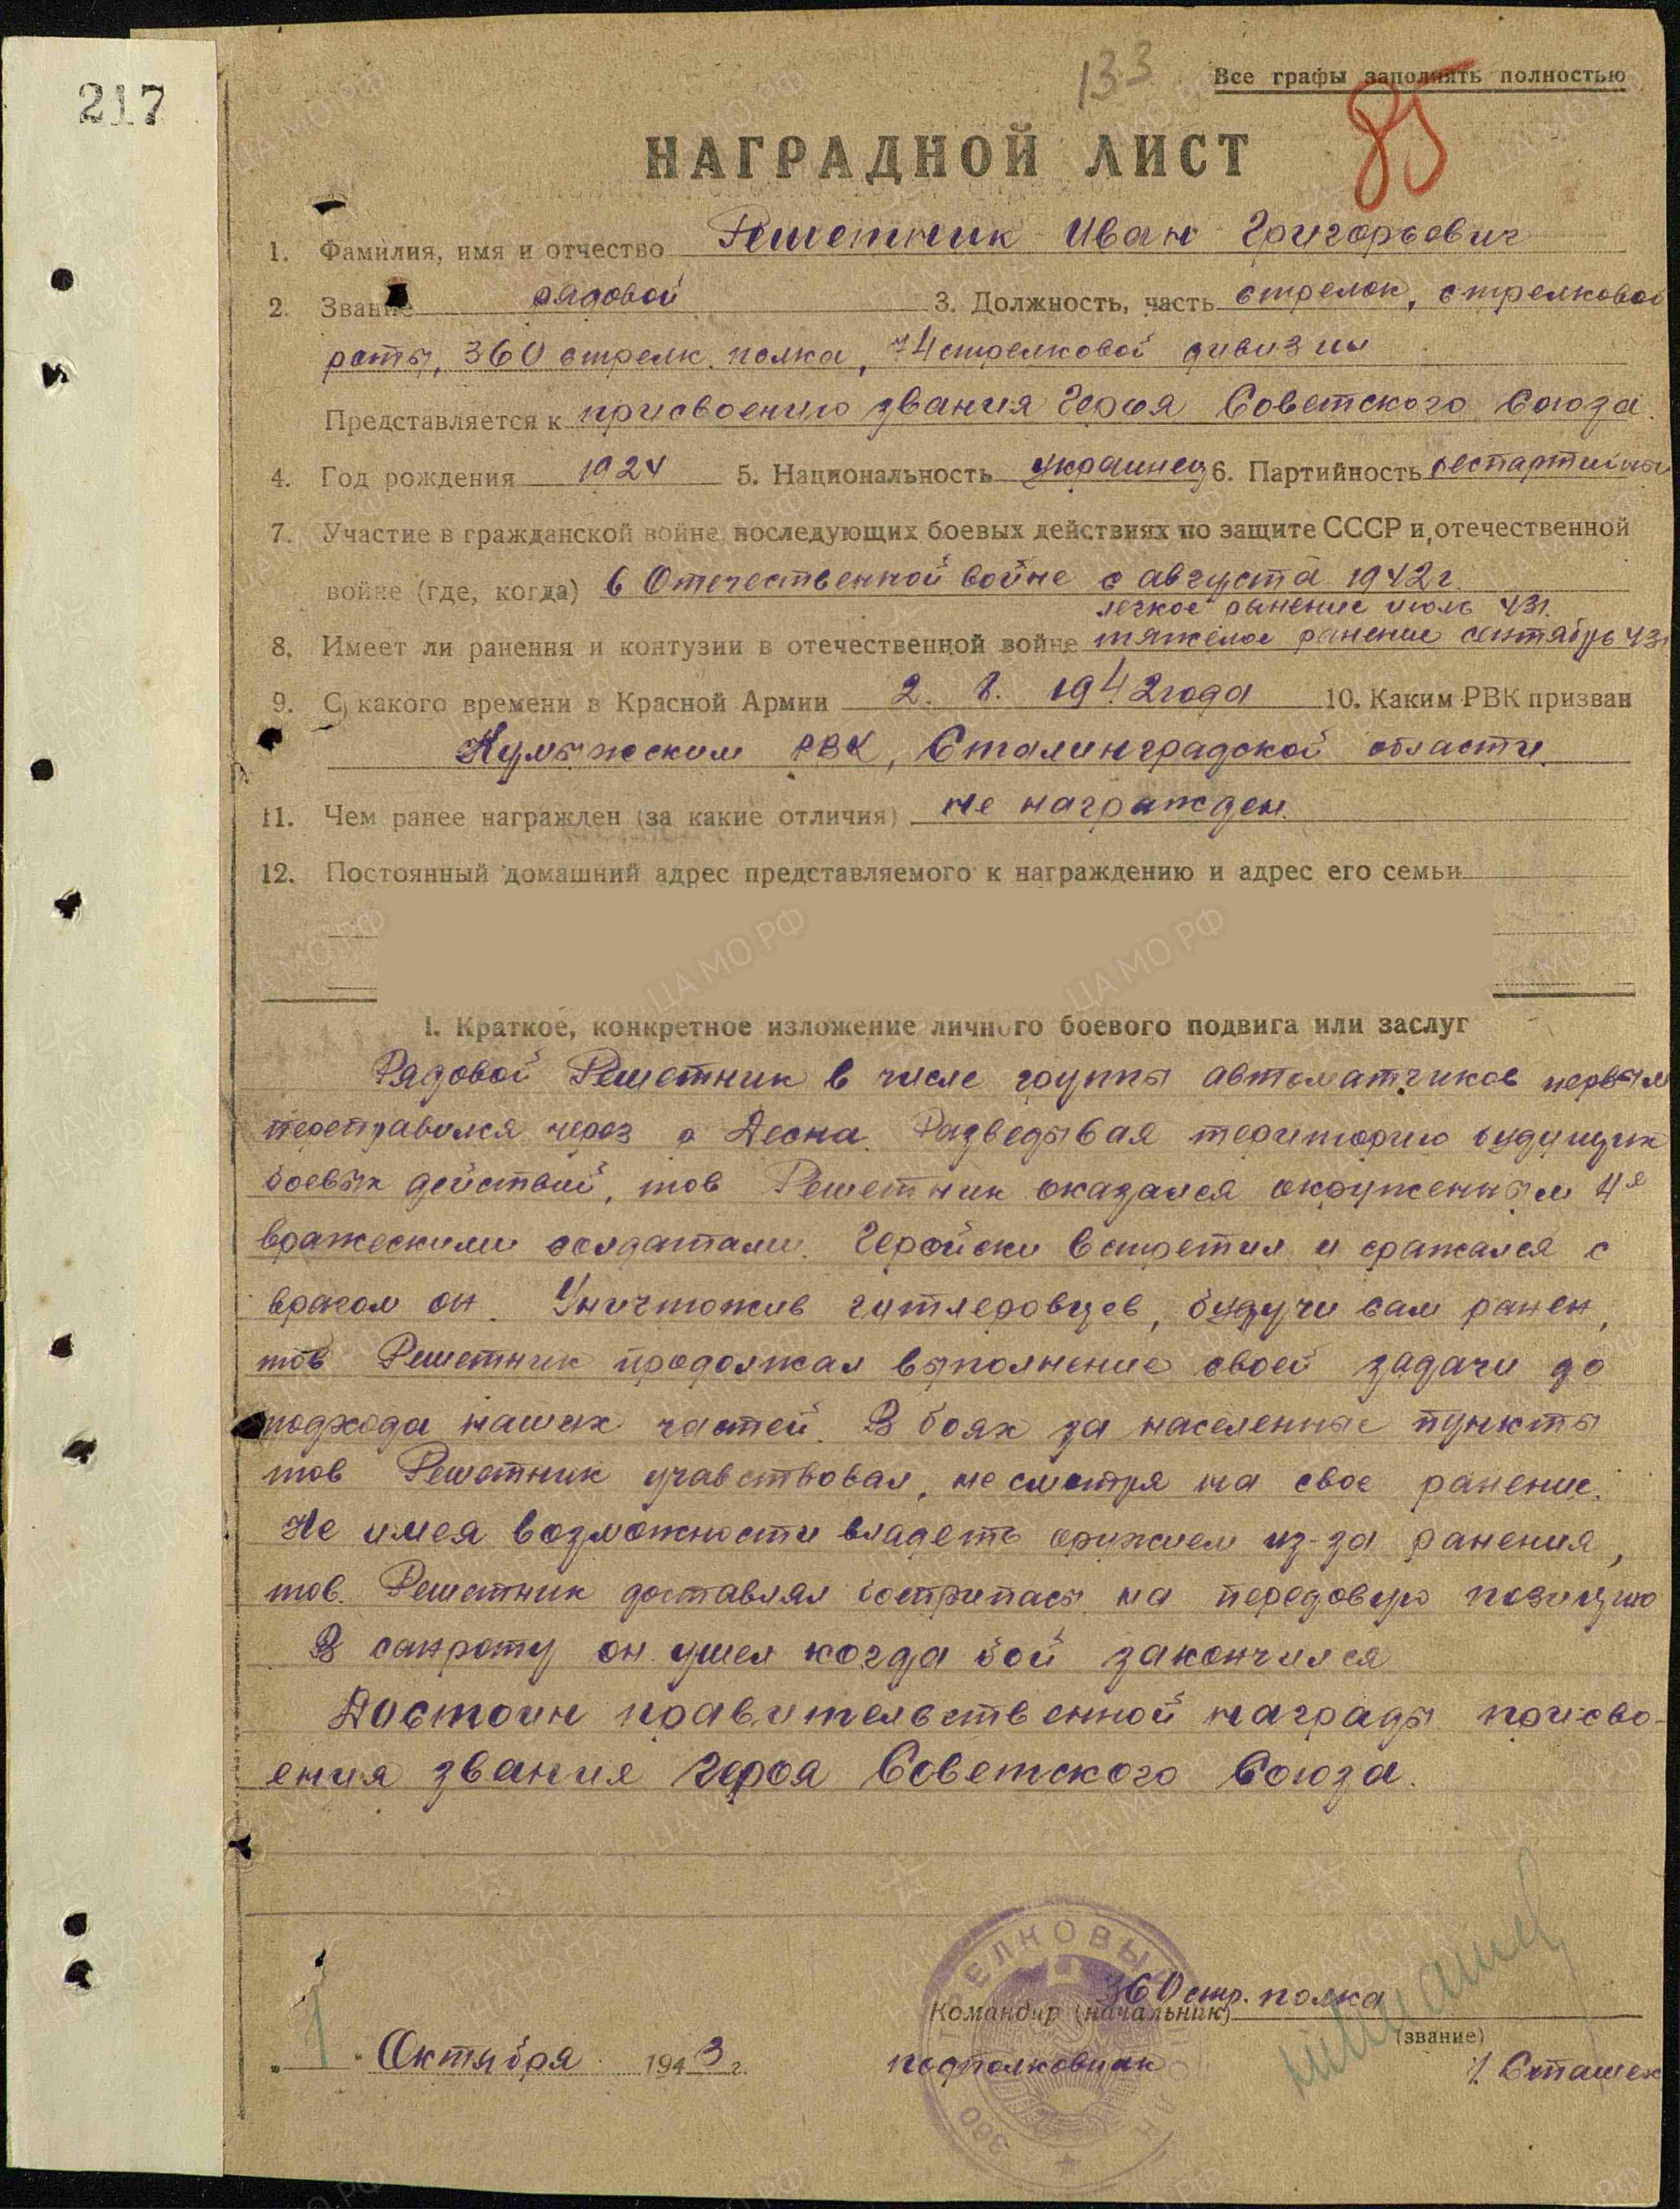 217
133
Все графы заполнять полностью
85
НАГРАДНОЙ ЛИСТ
1. Фамилия, имя и отчество Решетник Иван Григорьевич
2. Звание рядовой 3. Должность, часть стрелок, стрелковой
роты, 360 стрелк. полка, 74 стрелковой дивизии
Представляется к присвоению звания Героя Советского Союза.
4. Год рождения 1924 5. Национальность украинец 6. Партийность беспартийный
7. Участие в гражданской войне, последующих боевых действиях по защите СССР и отечественной
войне (где, когда) в Отечественной войне с августа 1942 г.
легкое ранение июль 43г.
8. Имеет ли ранения и контузии в отечественной войне тяжелое ранение сентябрь 43г
9. С какого времени в Красной Армии 2. 8. 1942 года 10. Каким РВК призван
РВК, Сталинградской области.
11. Чем ранее награжден (за какие отличия) не награжден.
12. Постоянный домашний адрес представляемого к награждению и адрес его семьи
I. Краткое, конкретное изложение личного боевого подвига или заслуг
Рядовой Решетник в числе группы автоматчиков первым
переправился через р Десна. Разведывая територию будущих
боевых действий, тов Решетник оказался окруженным 4я
вражескими солдатами. Геройски встретил и сражался с
врагом он. Уничтожив гитлеровцев, будучи сам ранен,
тов Решетник продолжал выполнение своей задачи до
подхода наших частей. В боях за населенные пункты
тов Решетник учавствовал, не смотря на свое ранение.
Не имея возможности владеть оружием из-за ранения,
тов. Решетник доставлял боеприпасы на передовую позицию
В санроту он ушел когда бой закончился
Достоин правительственной награды присво-
ения звания Героя Советского Союза.
360 стр. полка
Командир (начальник)
(звание)
" 1 " Октября 1943 г.
подполковник